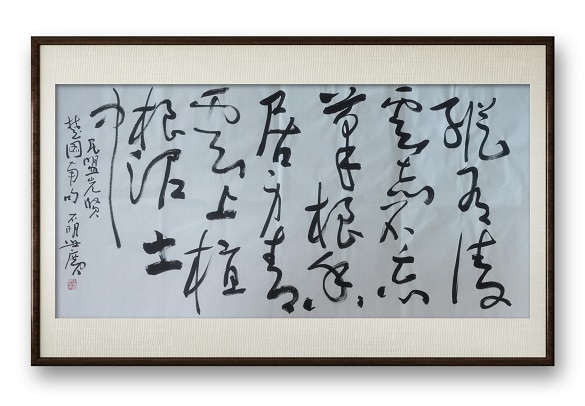 纵有凌
雲志不忘
草根身
居方青
雲上植
根泥土
中
民盟先贤
楚图南句